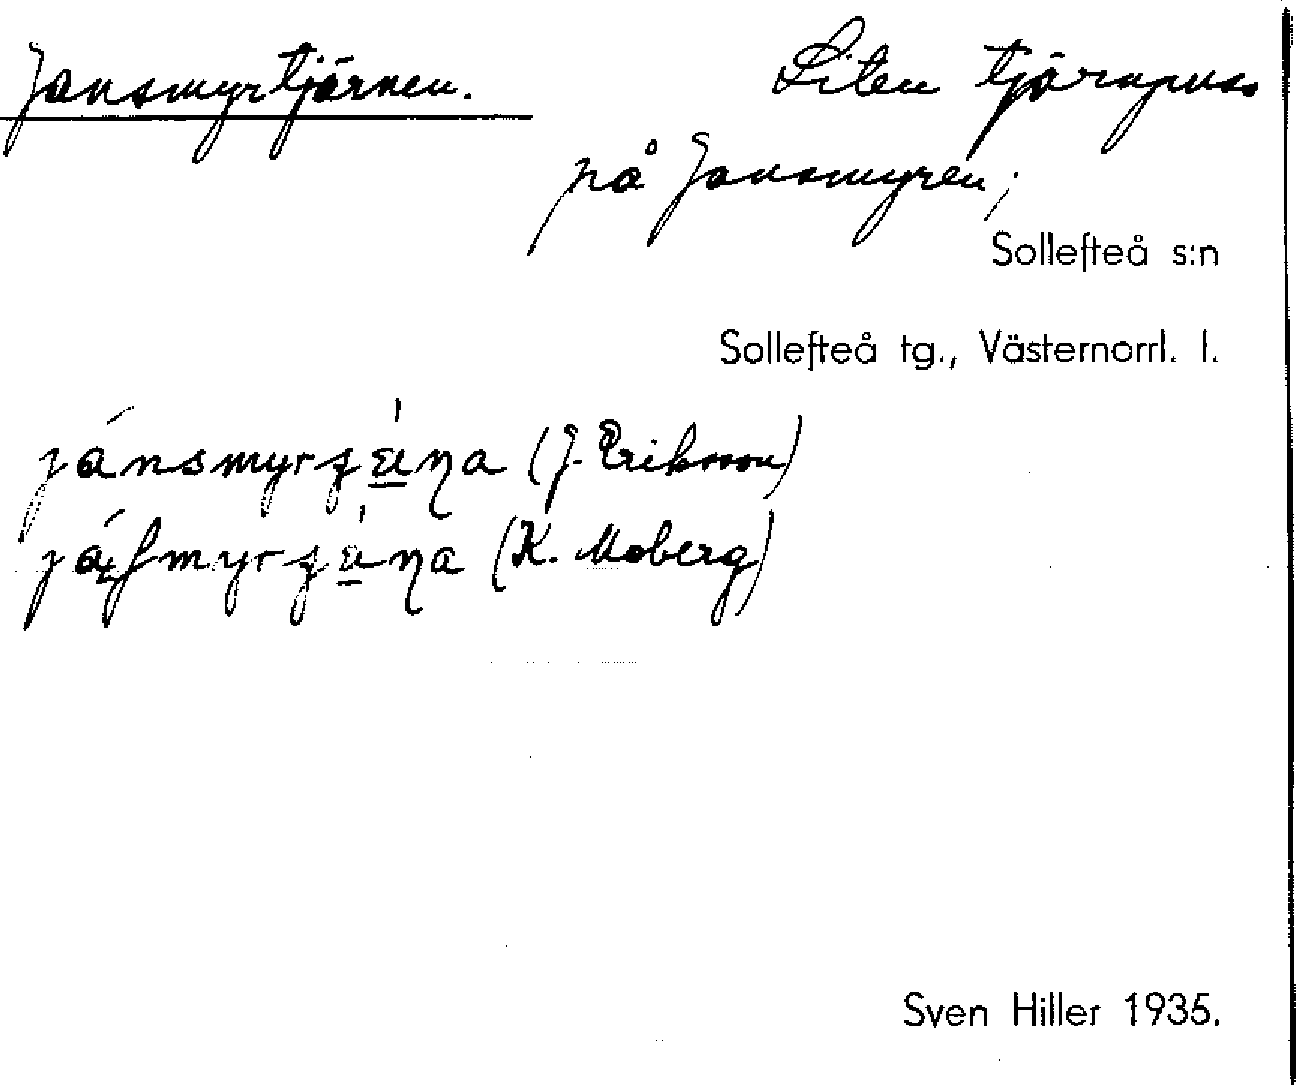 Jansmyrtjärnen. Liten tjärnpuss
på Jansmyren;
Sollefteå s:n
Sollefteå tg., Västernorrl. l.
(J. Eriksson)
(K. Moberg)
Sven Hiller 1935.